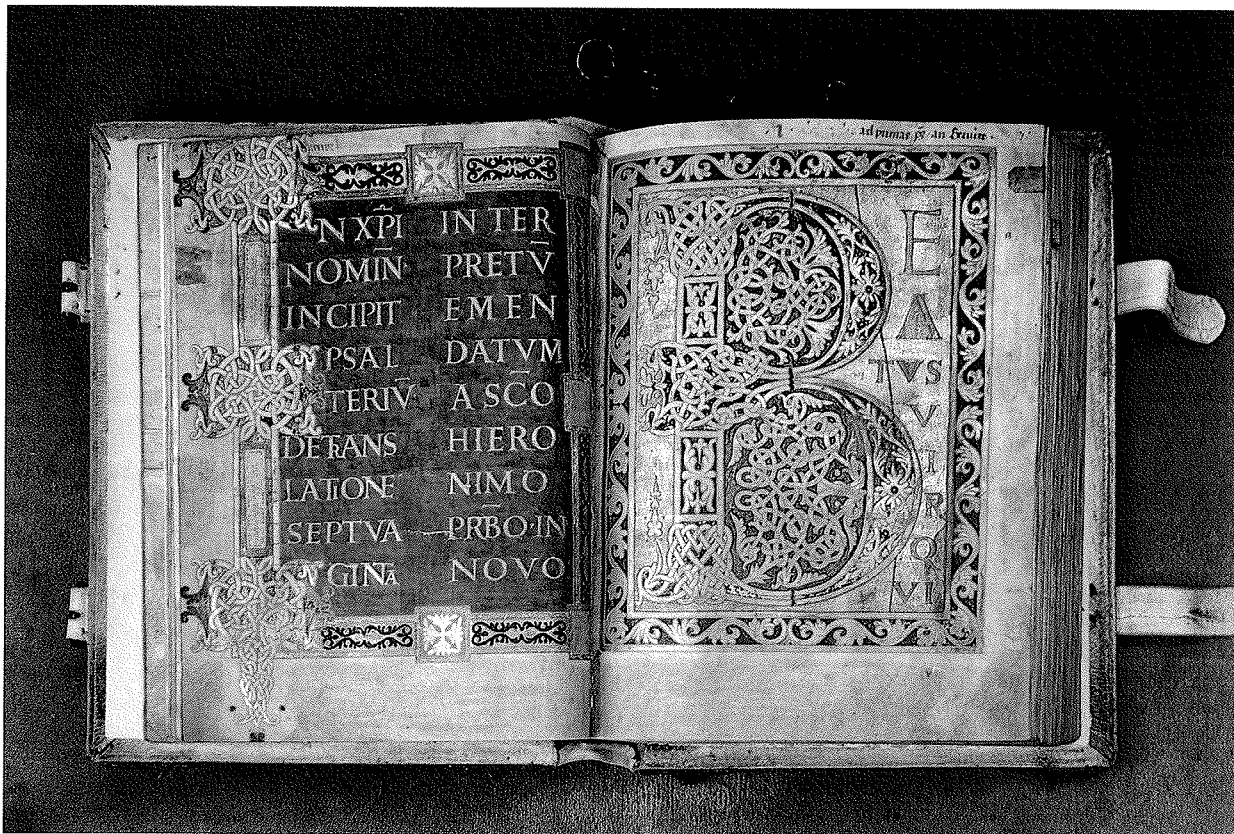 N XP̄I
NOMIN̄
INCIPIT
PSAL
TERIV̄
DE TRANS
LATIONE
SEPTVA
GINTA
IN TER
PRETV̄
EMEN
DATVM
A SC̄O
HIERO
NIMO
PRB̄O·IN
NOVO
B E
A
TVS
V
I
R
Q
VI